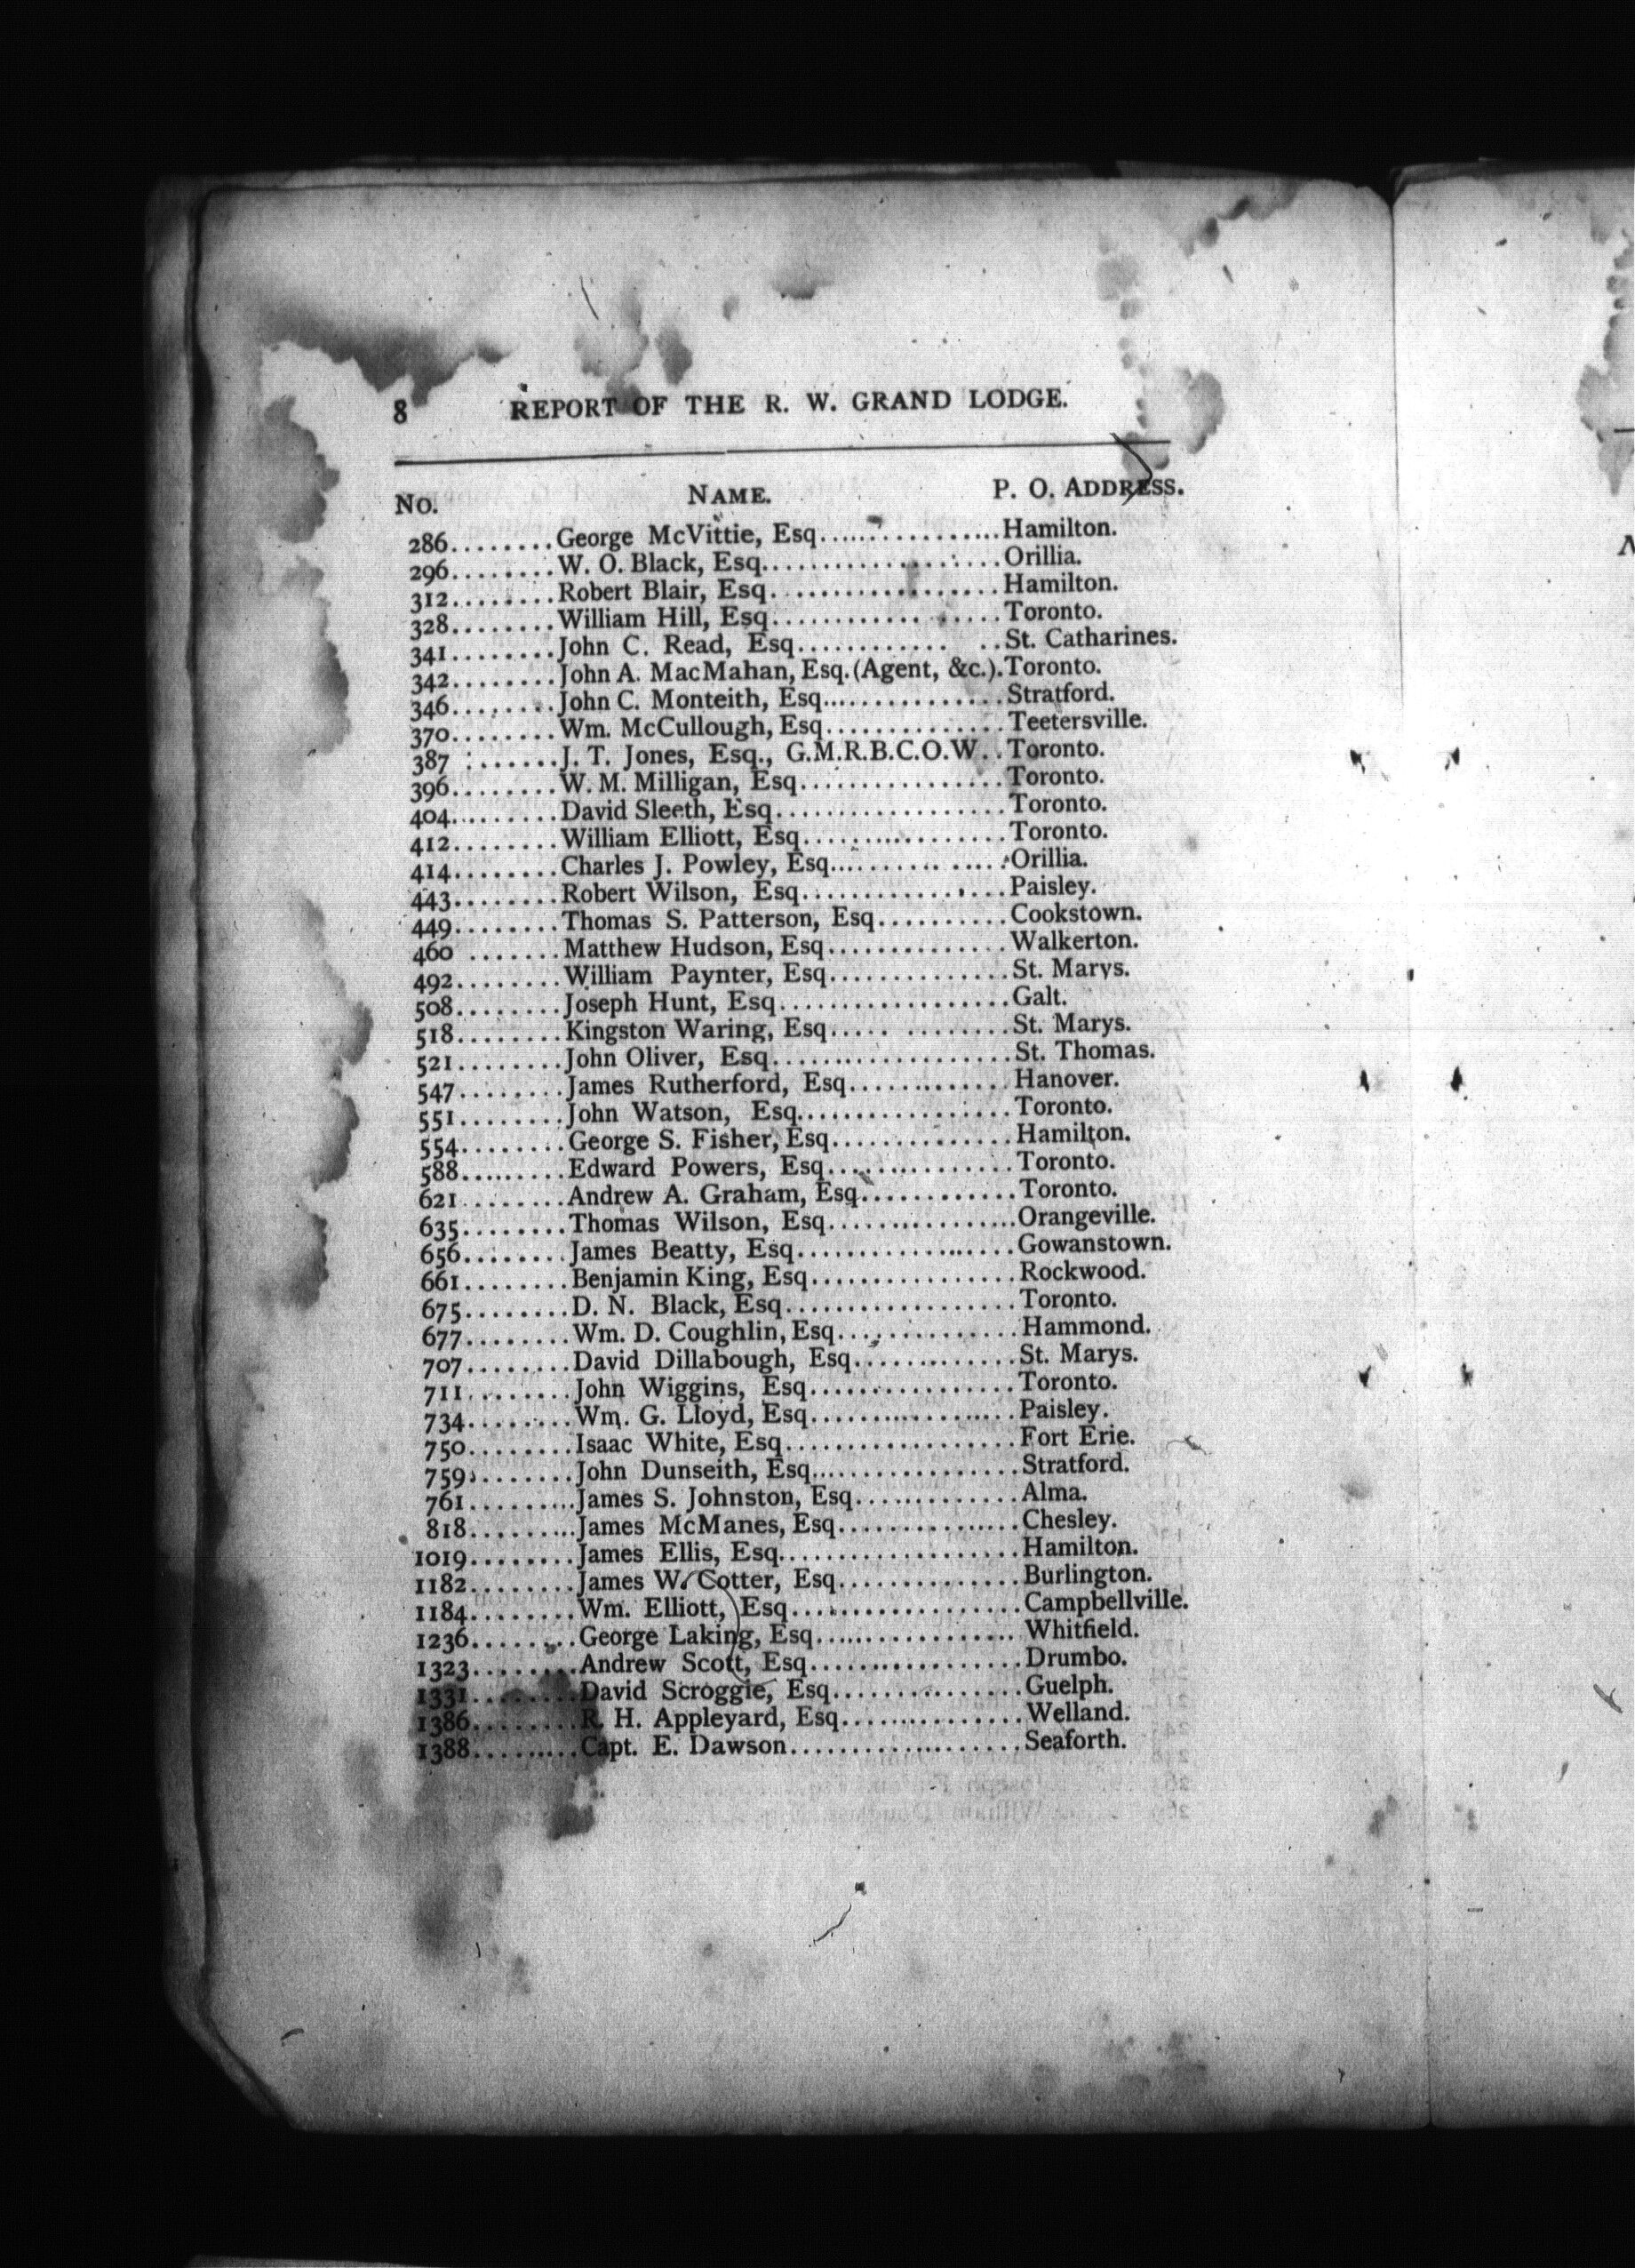 8 REPORT OF THE R. W. GRAND LODGE.
No. NAME. P. O. ADDRESS.
286........George McVittie, Esq................Hamilton.
296........W. O. Black, Esq....................Orillia.
312........Robert Blair, Esq...................Hamilton.
328........William Hill, Esq...................Toronto.
341........John C. Read, Esq............ ..St. Catharines.
342........John A. MacMahan, Esq. (Agent, &c.).Toronto.
346........John C. Monteith, Esq...............Stratford.
370........Wm. McCullough, Esq...............Teetersville.
387 .......J. T. Jones, Esq., G.M.R.B.C.O.W..Toronto.
396........W. M. Milligan, Esq.................Toronto.
404........David Sleeth, Esq...................Toronto.
412........William Elliott, Esq.................Toronto.
414........Charles J. Powley, Esq..............Orillia.
443........Robert Wilson, Esq.................Paisley.
449........Thomas S. Patterson, Esq...........Cookstown.
460 .......Matthew Hudson, Esq...............Walkerton.
492........William Paynter, Esq...............St. Marys.
508........Joseph Hunt, Esq...................Galt.
518........Kingston Waring, Esq..... ........St. Marys.
521........John Oliver, Esq....................St. Thomas.
547........James Rutherford, Esq..............Hanover.
551........John Watson, Esq..................Toronto.
554........George S. Fisher, Esq...............Hamilton.
588........Edward Powers, Esq................Toronto.
621........Andrew A. Graham, Esq.............Toronto.
635........Thomas Wilson, Esq................Orangeville.
656........James Beatty, Esq..................Gowanstown.
661........Benjamin King, Esq.................Rockwood.
675........D. N. Black, Esq....................Toronto.
677........Wm. D. Coughlin, Esq...............Hammond.
707........David Dillabough, Esq..............St. Marys.
711........John Wiggins, Esq..................Toronto.
734........Wm. G. Lloyd, Esq..................Paisley.
750........Isaac White, Esq....................Fort Erie.
759........John Dunseith, Esq..................Stratford.
761........James S. Johnston, Esq..............Alma.
818........James McManes, Esq................Chesley.
1019........James Ellis, Esq....................Hamilton.
1182........James W. Cotter, Esq...............Burlington.
1184........Wm. Elliott, Esq....................Campbellville.
1236........George Laking, Esq.................Whitfield.
1323........Andrew Scott, Esq..................Drumbo.
1331........David Scroggie, Esq................Guelph.
1386........R. H. Appleyard, Esq...............Welland.
1388........Capt. E. Dawson....................Seaforth.